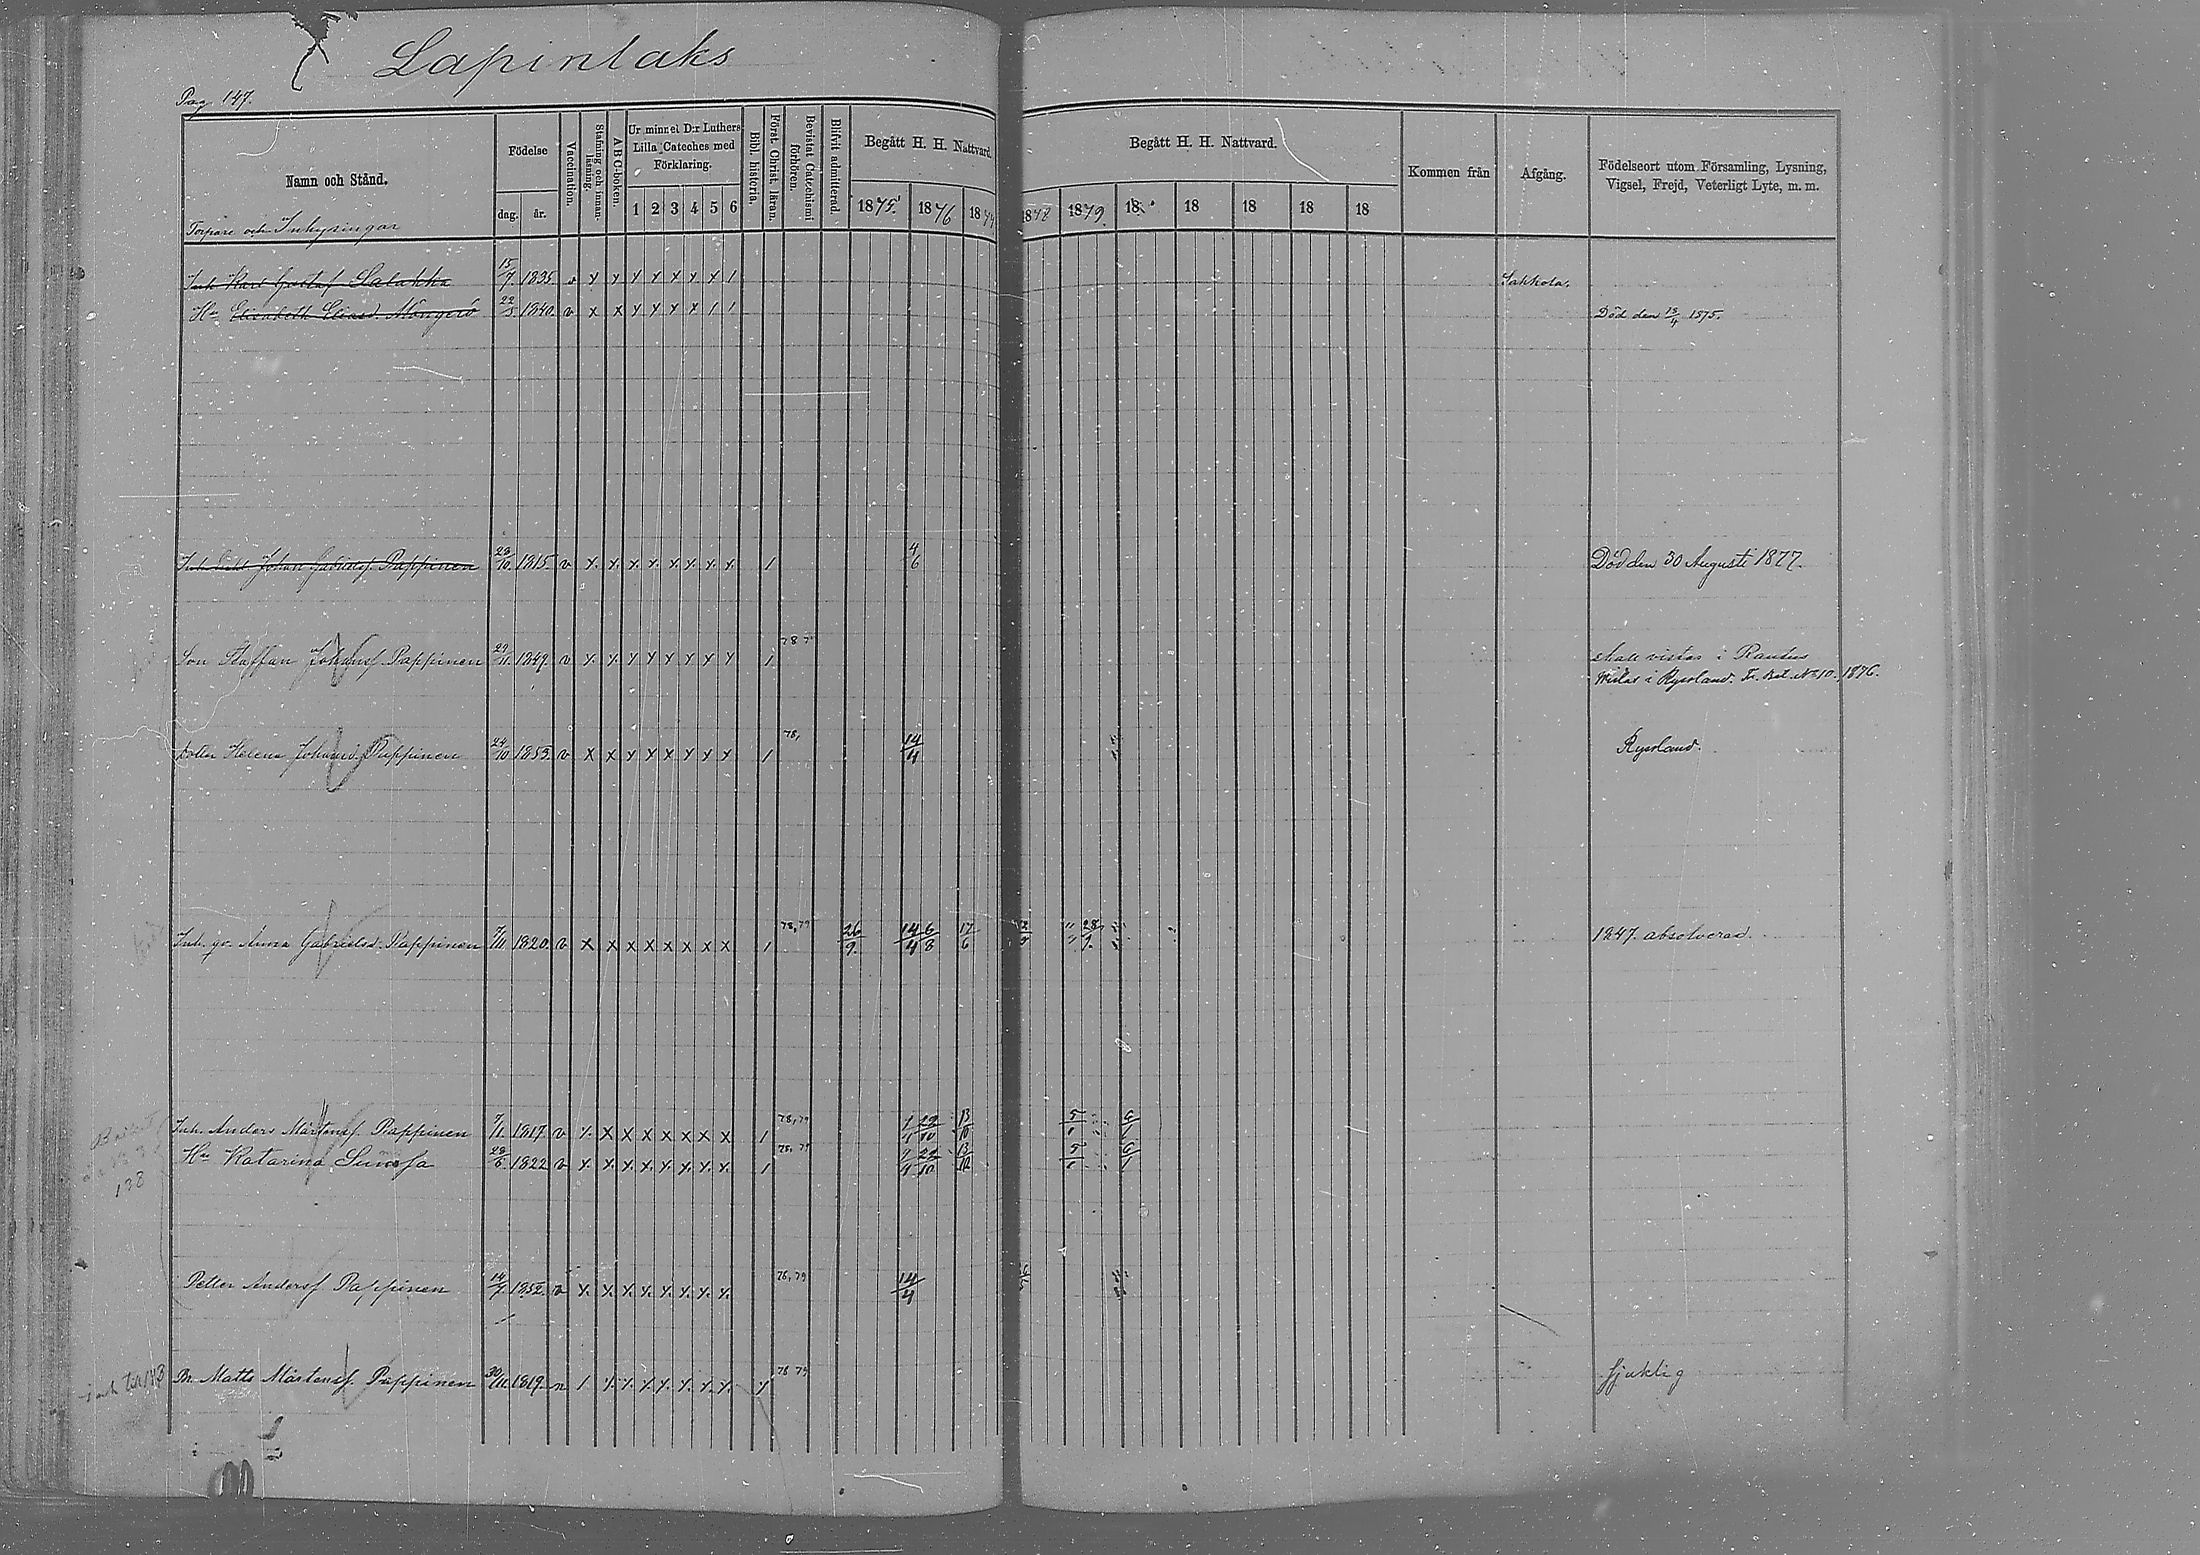 Lapinlaks
Pag. 147.
Namn och Stånd.
Födelse
dag. år.
Vaccination.
Stafning och innanläsning.
A B C-boken.
Ur minnet D:r Luthers Lilla Cateches med Förklaring.
1 2 3 4 5 6
Bibl. historia.
Först. Christ. läran.
Bevistat Catechismi förhören.
Blifvit admitterad.
Begått H. H. Nattvard.
1875. 1876 1877
Begått H. H. Nattvard.
1878 1879. 18 18 18 18 18
Kommen från
Afgång.
Födelseort utom Församling, Lysning, Vigsel, Frejd, Veterligt Lyte, m. m.
Torpare och Inhysingar
Inh. Karl Gustaf Salakka 15/7. 1835 v x x x x x x x 1 Sakkola.
Hu Elisabeth Eliasd. 22/3 1840 v x x x x x x 1 1 Död den 13/4 1875.
Johan Gabrielsf. Pappinen 23/10. 1815. v x x x x x x x x 1 4/6 Död den 30 Augusti 1877.
Son Staffan Johansf. Pappinen 29/11. 1849. v x x x x x x x x 1 78 skall vistas i Rautus
Vistas i Ryssland. Fr. Bet. No 10. 1876.
Dotter Helena Johansd. Pappinen 24/10 1853. v x x x x x x x x 1 78, 14/4 Ryssland.
Inh. Anna Gabrielsd. Pappinen 7/11. 1820. v x x x x x x x x 1 78, 79 26/9. 14/4 6/8 17/6 1847. absolverad.
Inh. Anders Mårtensf. Pappinen 7/1. 1817 v x x x x x x x x 1 78, 79 22/10 13/10
Hu Katarina 23/6. 1822 v x x x x x x x x 1 22/10 13/10
138
Petter Andersf. Pappinen 14/9. 1852. v x x x x x x x x 78, 79 14/4
Br. Matts Mårtensf. Pappinen 30/11. 1819. n 1 x x x x x x x 78 79 Sjuklig